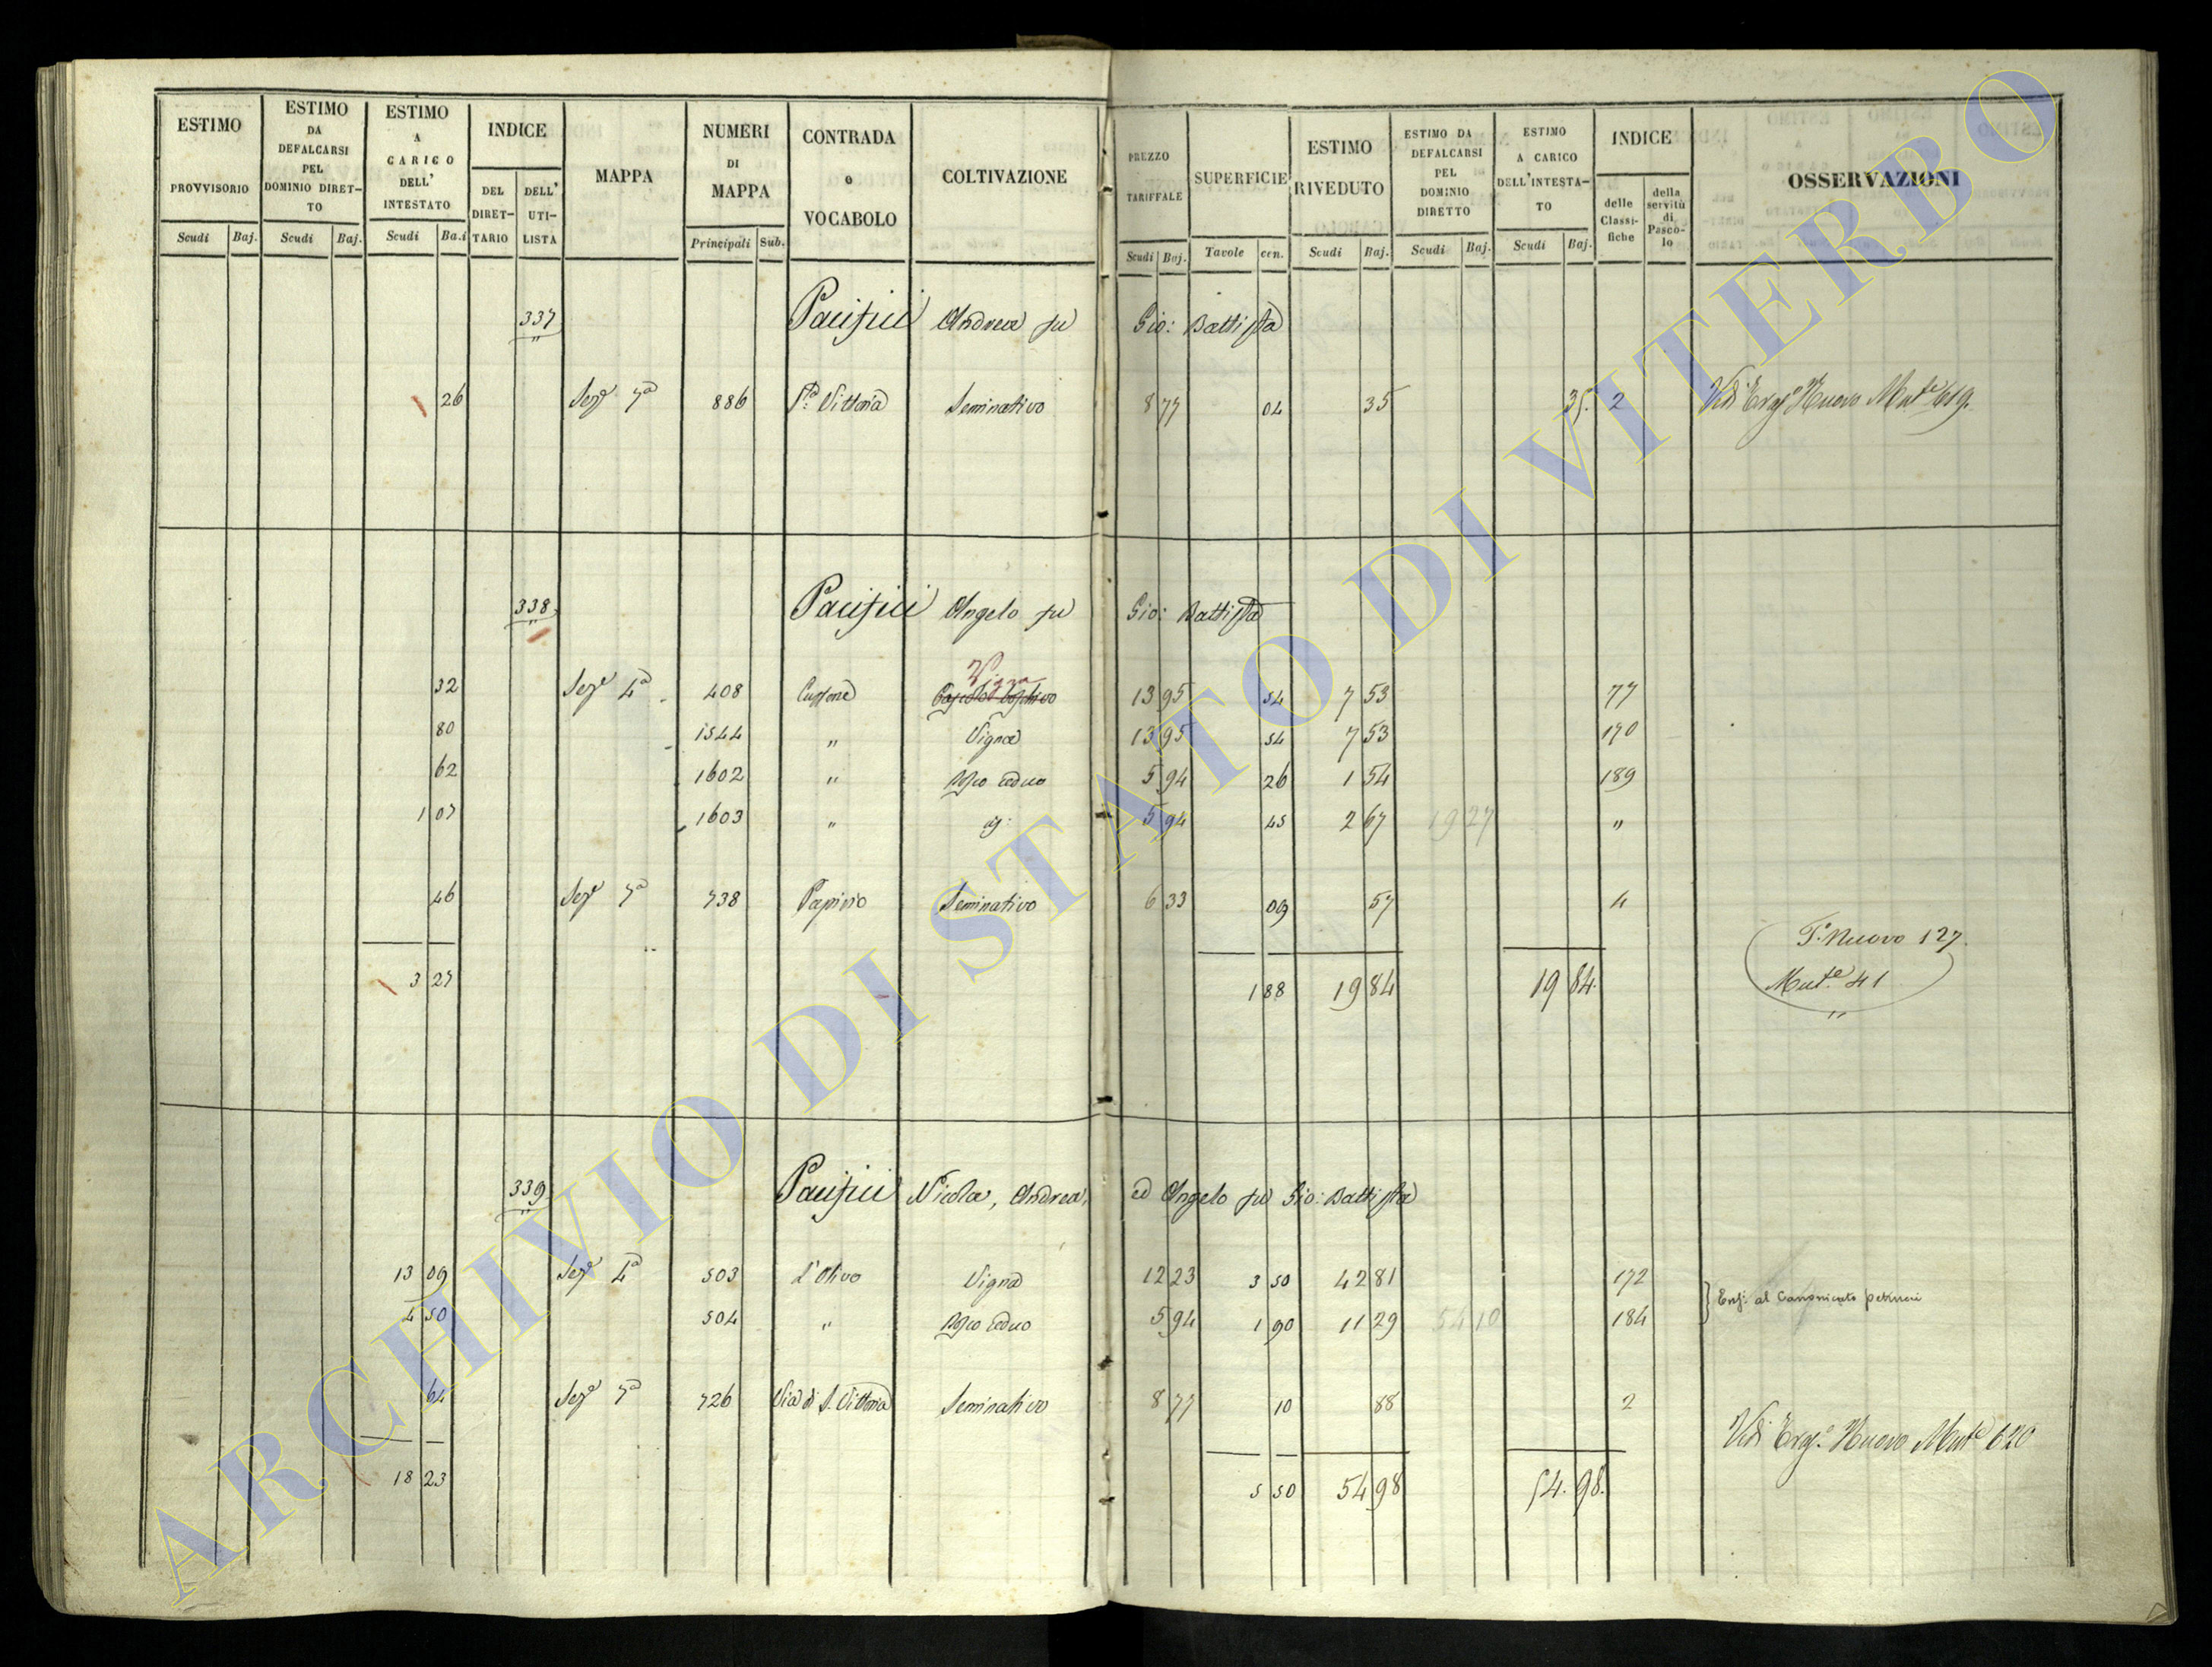 ESTIMO PROVVISORIO Scudi Baj.
ESTIMO DA DEFALCARSI PEL DOMINIO DIRET-TO Scudi Baj.
ESTIMO A CARICO DELL' INTESTATO Scudi Ba.i
INDICE DEL DIRET-TARIO DELL' UTI-LISTA
MAPPA
NUMERI DI MAPPA Principali Sub.
CONTRADA o VOCABOLO
COLTIVAZIONE
PREZZO TARIFFALE Scudi Baj.
SUPERFICIE Tavole cen.
ESTIMO RIVEDUTO Scudi Baj.
ESTIMO DA DEFALCARSI PEL DOMINIO DIRETTO Scudi Baj.
ESTIMO A CARICO DELL'INTESTA-TO Scudi Baj.
INDICE delle Classi-fiche della servitù di Pasco-lo
OSSERVAZIONI
337 Pacifici Andrea fu Gio: Battista
26 Sez.e 7a 886 S.ta Vittoria Seminativo 8 77 04 35 35. 2 Nuovo Mut.e 619.
338 Pacifici Angelo fu Gio: Battista
Vigna
32 Sez.e 4a 408 13 95 54 7 53 77
80 1544 " Vigna 13 95 54 7 53 170
62 1602 " Bosco ceduo 5 94 26 1 54 189
1 07 1603 " 5 94 45 2 67 19 27 "
46 Sez.e 7a 738 Papirio Seminativo 6 33 09 57 4
T. Nuovo 127.
3 27 1 88 19 84 19 84. Mut.e 41
339 Pacifici Nicola, Andrea, ed Angelo fu Gio: Battista
13 09 Sez.e 4a 503 L'Olivo Vigna 12 23 3 50 42 81 172
4 50 504 " Bosco ceduo 5 94 1 90 11 29 54 10 184
Enf: al Canonicato
64 Sez.e 7a 726 Via di S. Vittoria Seminativo 8 77 10 88 2
Nuovo Mut.e 620
18 23 5 50 54 98 54. 98.
ARCHIVIO DI STATO DI VITERBO